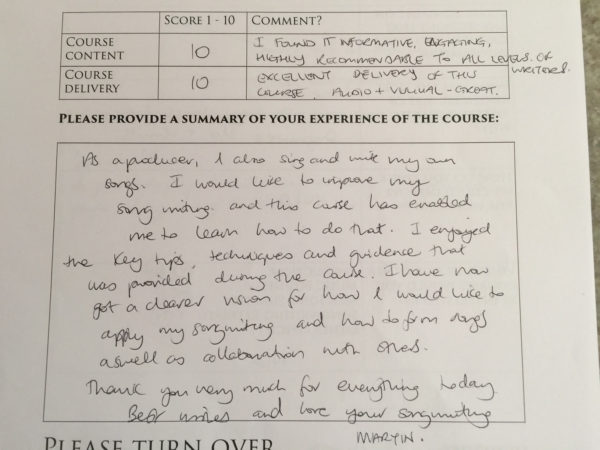 SCORE 1 - 10 COMMENT?
COURSE CONTENT 10 I FOUND IT INFORMATIVE, ENGAGING, HIGHLY RECOMMENDABLE TO ALL LEVELS OF WRITERS.
COURSE DELIVERY 10 EXCELLENT DELIVERY OF THIS COURSE. AUDIO + VISUAL - GREAT.
PLEASE PROVIDE A SUMMARY OF YOUR EXPERIENCE OF THE COURSE:
As a producer, I also sing and write my own
songs. I would like to improve my
song writing and this course has enabled
me to learn how to do that. I enjoyed
the key tips, techniques and guidence that
was provided during the course. I have now
got a clearer vision for how I would like to
apply my songwriting and how to form songs
aswell as collaboration with others.
Thank you very much for everything today
Best wishes and love your songwriting
MARTIN.
PLEASE TURN OVER